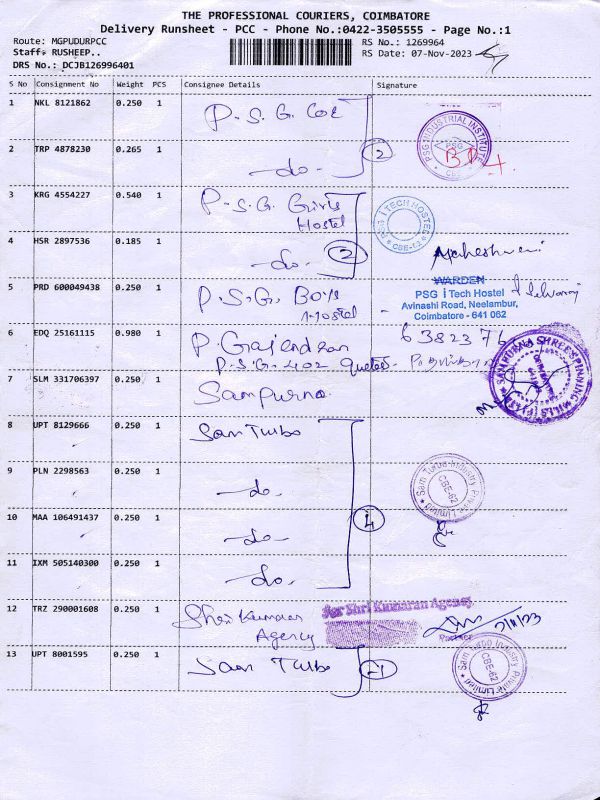 THE PROFESSIONAL COURIERS, COIMBATORE
Delivery Runsheet - PCC - Phone No.:0422-3505555 - Page No.:1
Route: MGPUDURPCC
Staff: RUSHEEP..
DRS No.: DCJB126996401
RS No.: 1269964
RS Date: 07-Nov-2023
S No Consignment No Weight PCS Consignee Details Signature
1 NKL 8121862 0.250 1 P.S.G. COE
PSG INDUSTRIAL INSTITUTE
PSG
CBE
2 TRP 4878230 0.265 1 -do- 2
3 KRG 4554227 0.540 1 P.S.G. Girls
Hostel
PSG i TECH HOSTEL
CBE-62
4 HSR 2897536 0.185 1 -do- 2
Maheshwari
5 PRD 600049438 0.250 1 P.S.G. Boys
Hostel
WARDEN
PSG i Tech Hostel
Avinashi Road, Neelambur,
Coimbatore - 641 062
6 EDQ 25161115 0.980 1 P Gajendran
P.S.G. 402
6382376
7 SLM 331706397 0.250 1 Sampurna
8 UPT 8129666 0.250 1 Sam Turbo
9 PLN 2298563 0.250 1 -do-
Sam Turbo Industry Private Limited
CBE-62
10 MAA 106491437 0.250 1 -do- 4
11 IXM 505140300 0.250 1 -do-
12 TRZ 290001608 0.250 1 Shri Kumaran
Agency
For Shri Kumaran Agency
Partner
7/11/23
13 UPT 8001595 0.250 1 Sam Turbo
Sam Turbo Industry Private Limited
CBE-62